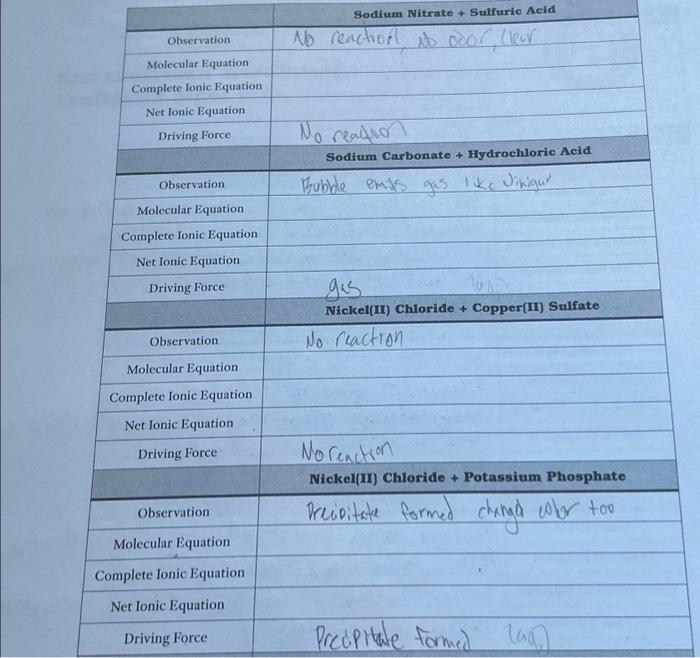 Sodium Nitrate + Sulfuric Acid
Observation No reaction, no odor, clear
Molecular Equation
Complete Ionic Equation
Net Ionic Equation
Driving Force No reaction
Sodium Carbonate + Hydrochloric Acid
Observation Bubble emits gas like Vinigur
Molecular Equation
Complete Ionic Equation
Net Ionic Equation
Driving Force gas
Nickel(II) Chloride + Copper(II) Sulfate
Observation No reaction
Molecular Equation
Complete Ionic Equation
Net Ionic Equation
Driving Force No reaction
Nickel(II) Chloride + Potassium Phosphate
Observation Precipitate formed changd color too
Molecular Equation
Complete Ionic Equation
Net Ionic Equation
Driving Force Precipitate formed (aq)